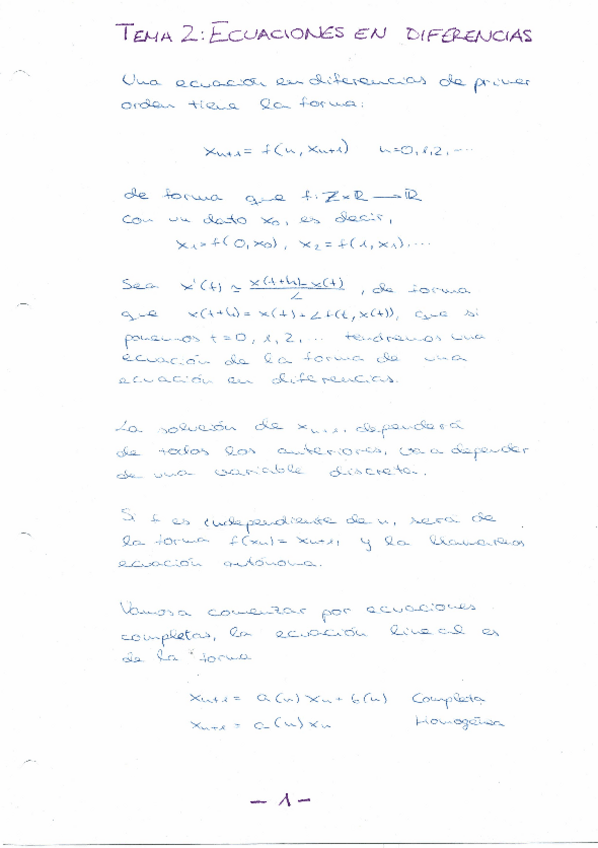 TEMA 2: ECUACIONES EN DIFERENCIAS
Una ecuación en diferencias de primer
orden tiene la forma:
xₙ₊₁ = f(n, xₙ₊₁) n=0,1,2,...
de forma que f: ℤ×ℝ → ℝ
con un dato x₀, es decir,
x₁=f(0,x₀), x₂=f(1,x₁)....
Sea x'(t) ≃ (x(t+h)-x(t))/h, de forma
que x(t+h)=x(t)+h f(t,x(t)), que si
ponemos t=0,1,2,... tendremos una
ecuación de la forma de una
ecuación en diferencias.
La solución de xₙ₊₁, dependerá
de todos los anteriores, va a depender
de una variable discreta.
Si f es independiente de n, será de
la forma f(xₙ)=xₙ₊₁, y la llamaremos
ecuación autónoma.
Vamos a comenzar por ecuaciones
completas, la ecuación lineal es
de la forma
xₙ₊₁ = a(n)xₙ + b(n) Completa
xₙ₊₁ = a(n)xₙ Homogénea
- 1 -